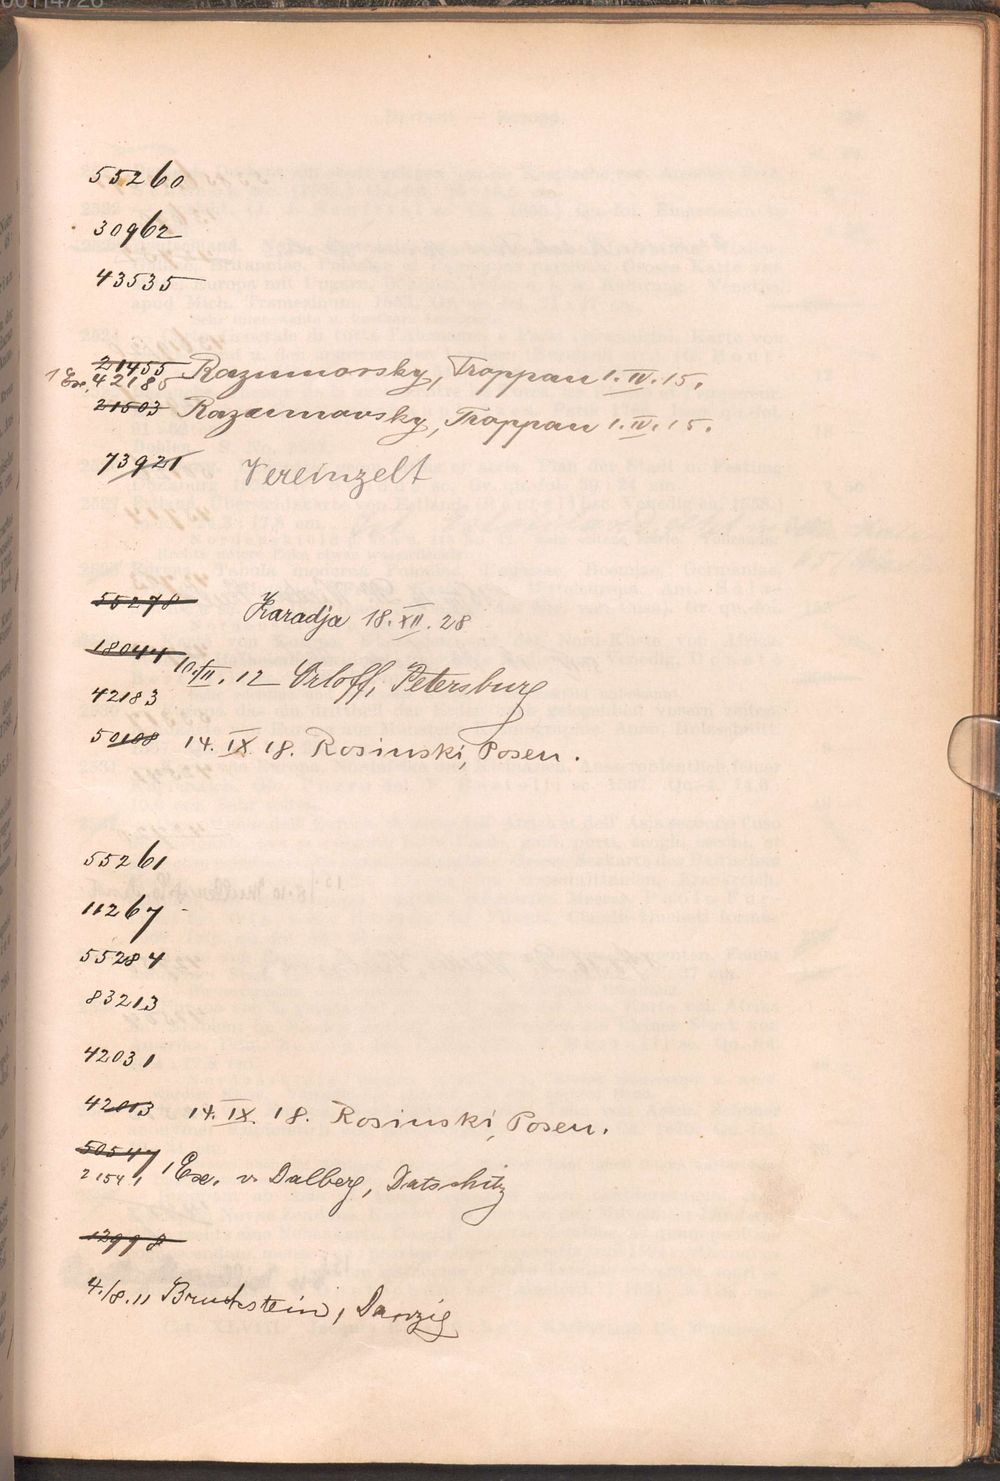 55260
30962
43535
21455 Razumovsky, Troppau 1.IV.15.
1 Ex. 42185
21503 Razumovsky, Troppau 1.IV.15.
73921 Vereinzelt
55278 Karadja 18.XII.28
18044 10.III.12 Orloff, Petersburg
42183
50108 14.IX 18. Rosinski, Posen.
55261
11267
55284
83213
42031
42003 14.IX. 18. Rosinski, Posen.
50547
21541 1 Ex. v. Dalberg, Datschitz
12998
4./8.11 Bruckstein, Danzig